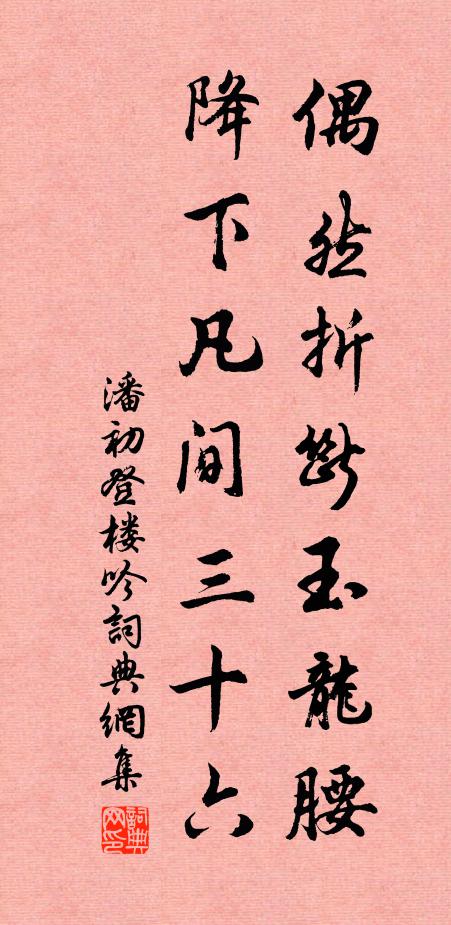 偶然折斷玉龍腰
降下凡间三十六
潘初登楼吟詞典網集
詞典
网印